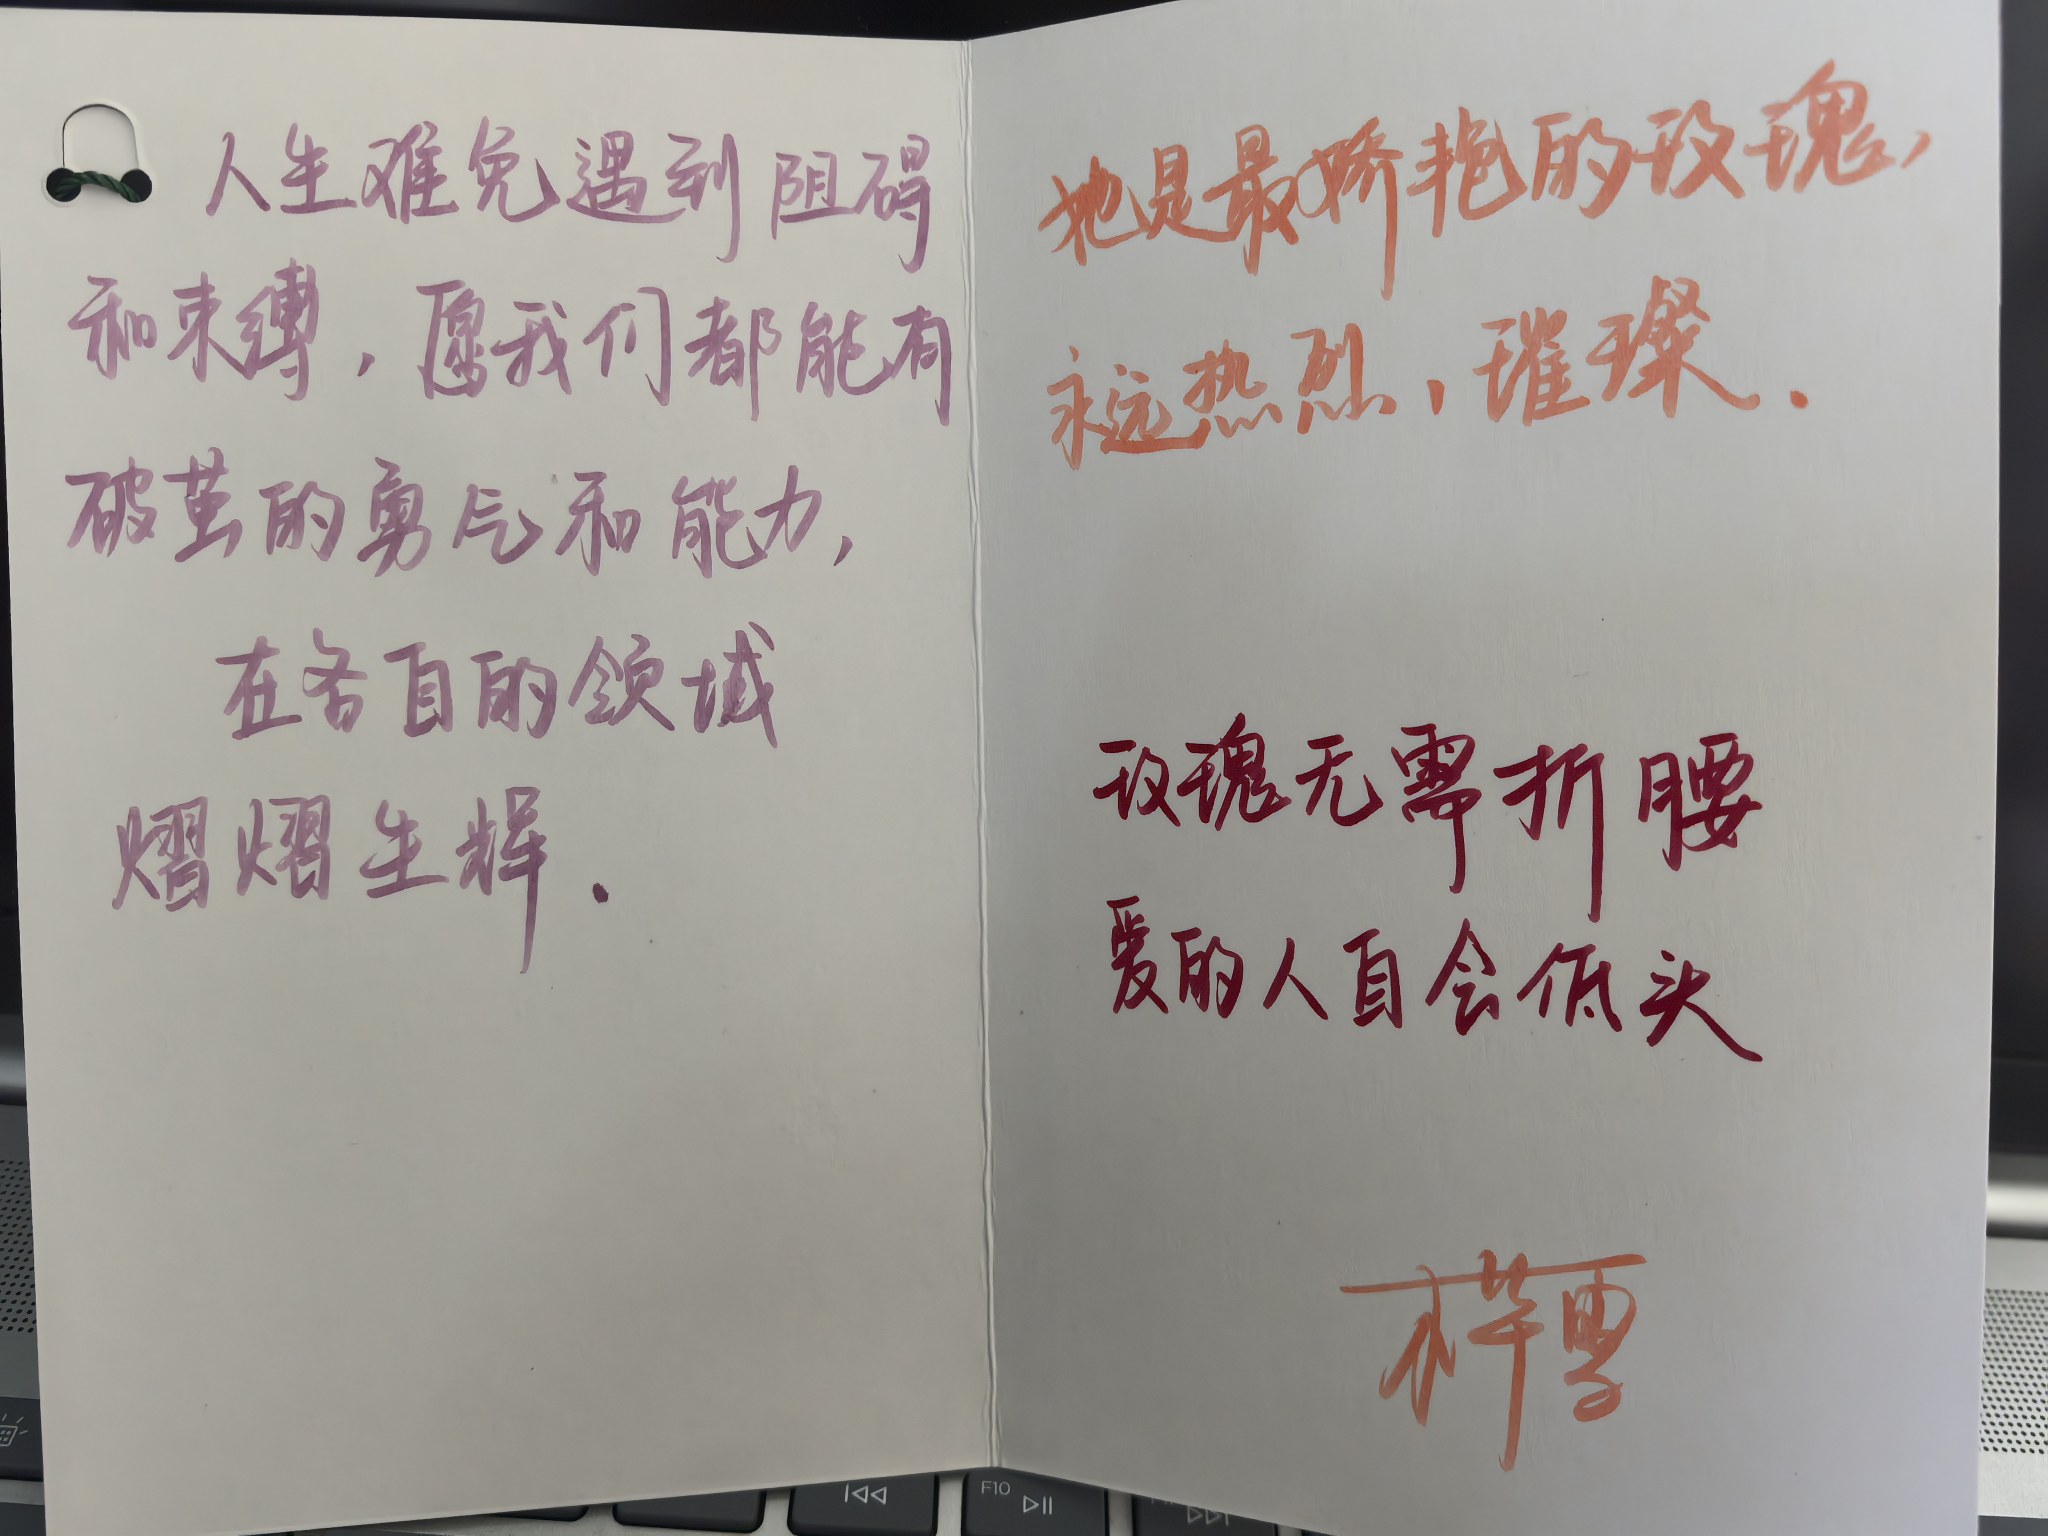 人生难免遇到阻碍
和束缚，愿我们都能有
破茧的勇气和能力，
在各自的领域
熠熠生辉.
她是最娇艳的玫瑰，
永远热烈，璀璨.
玫瑰无需折腰
爱的人自会低头
F10